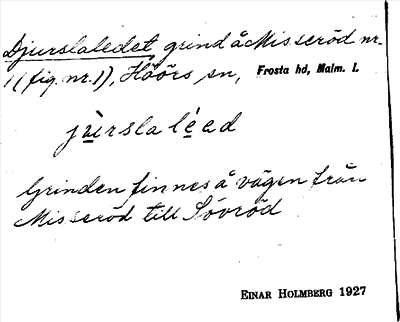 Djurslaledet, grind å Misseröd nr.
1 (fig. nr. 1), Höörs sn, Frosta hd, Malm. l.
jùrslaléad
Grinden finnes å vägen från
Misseröd till Sövröd
EINAR HOLMBERG 1927